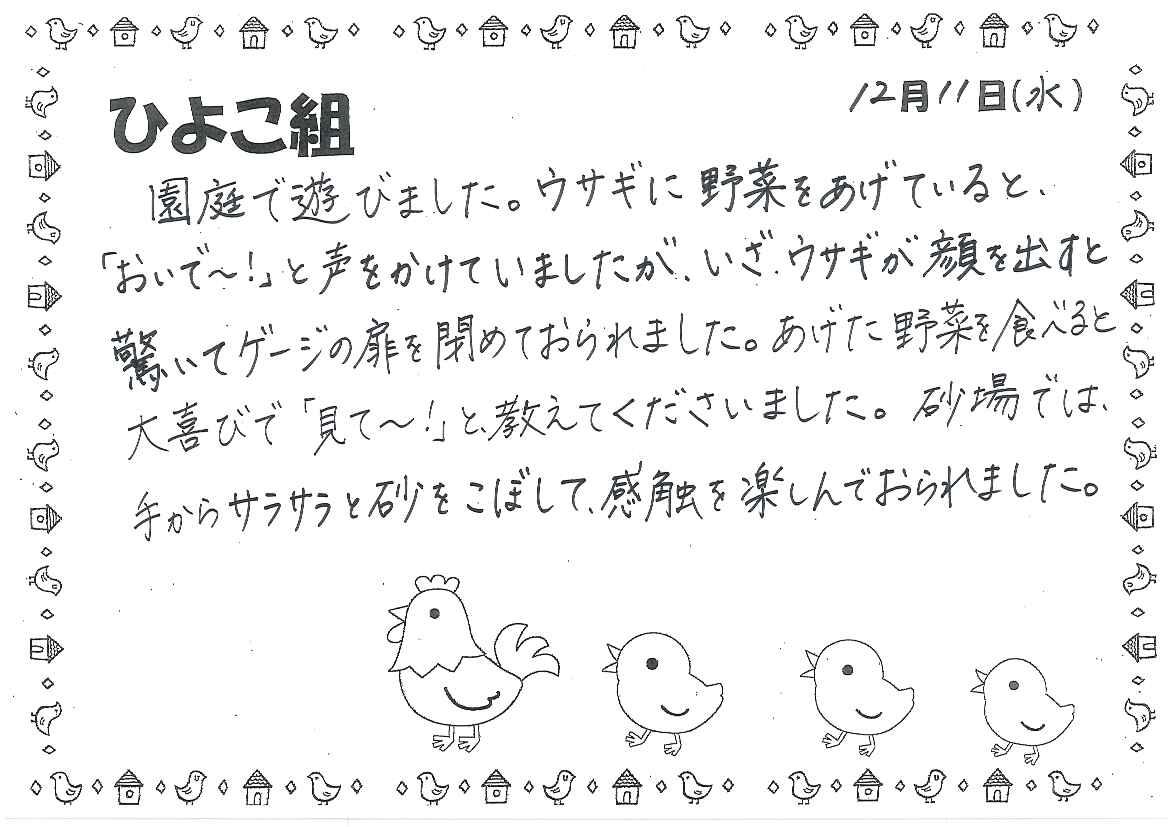 ひよこ組
12月11日(水)
園庭で遊びました。ウサギに野菜をあげていると、
「おいで〜!」と声をかけていましたが、いざ、ウサギが顔を出すと
驚いてゲージの扉を閉めておられました。あげた野菜を食べると
大喜びで「見て〜!」と、教えてくださいました。砂場では、
手からサラサラと砂をこぼして、感触を楽しんでおられました。